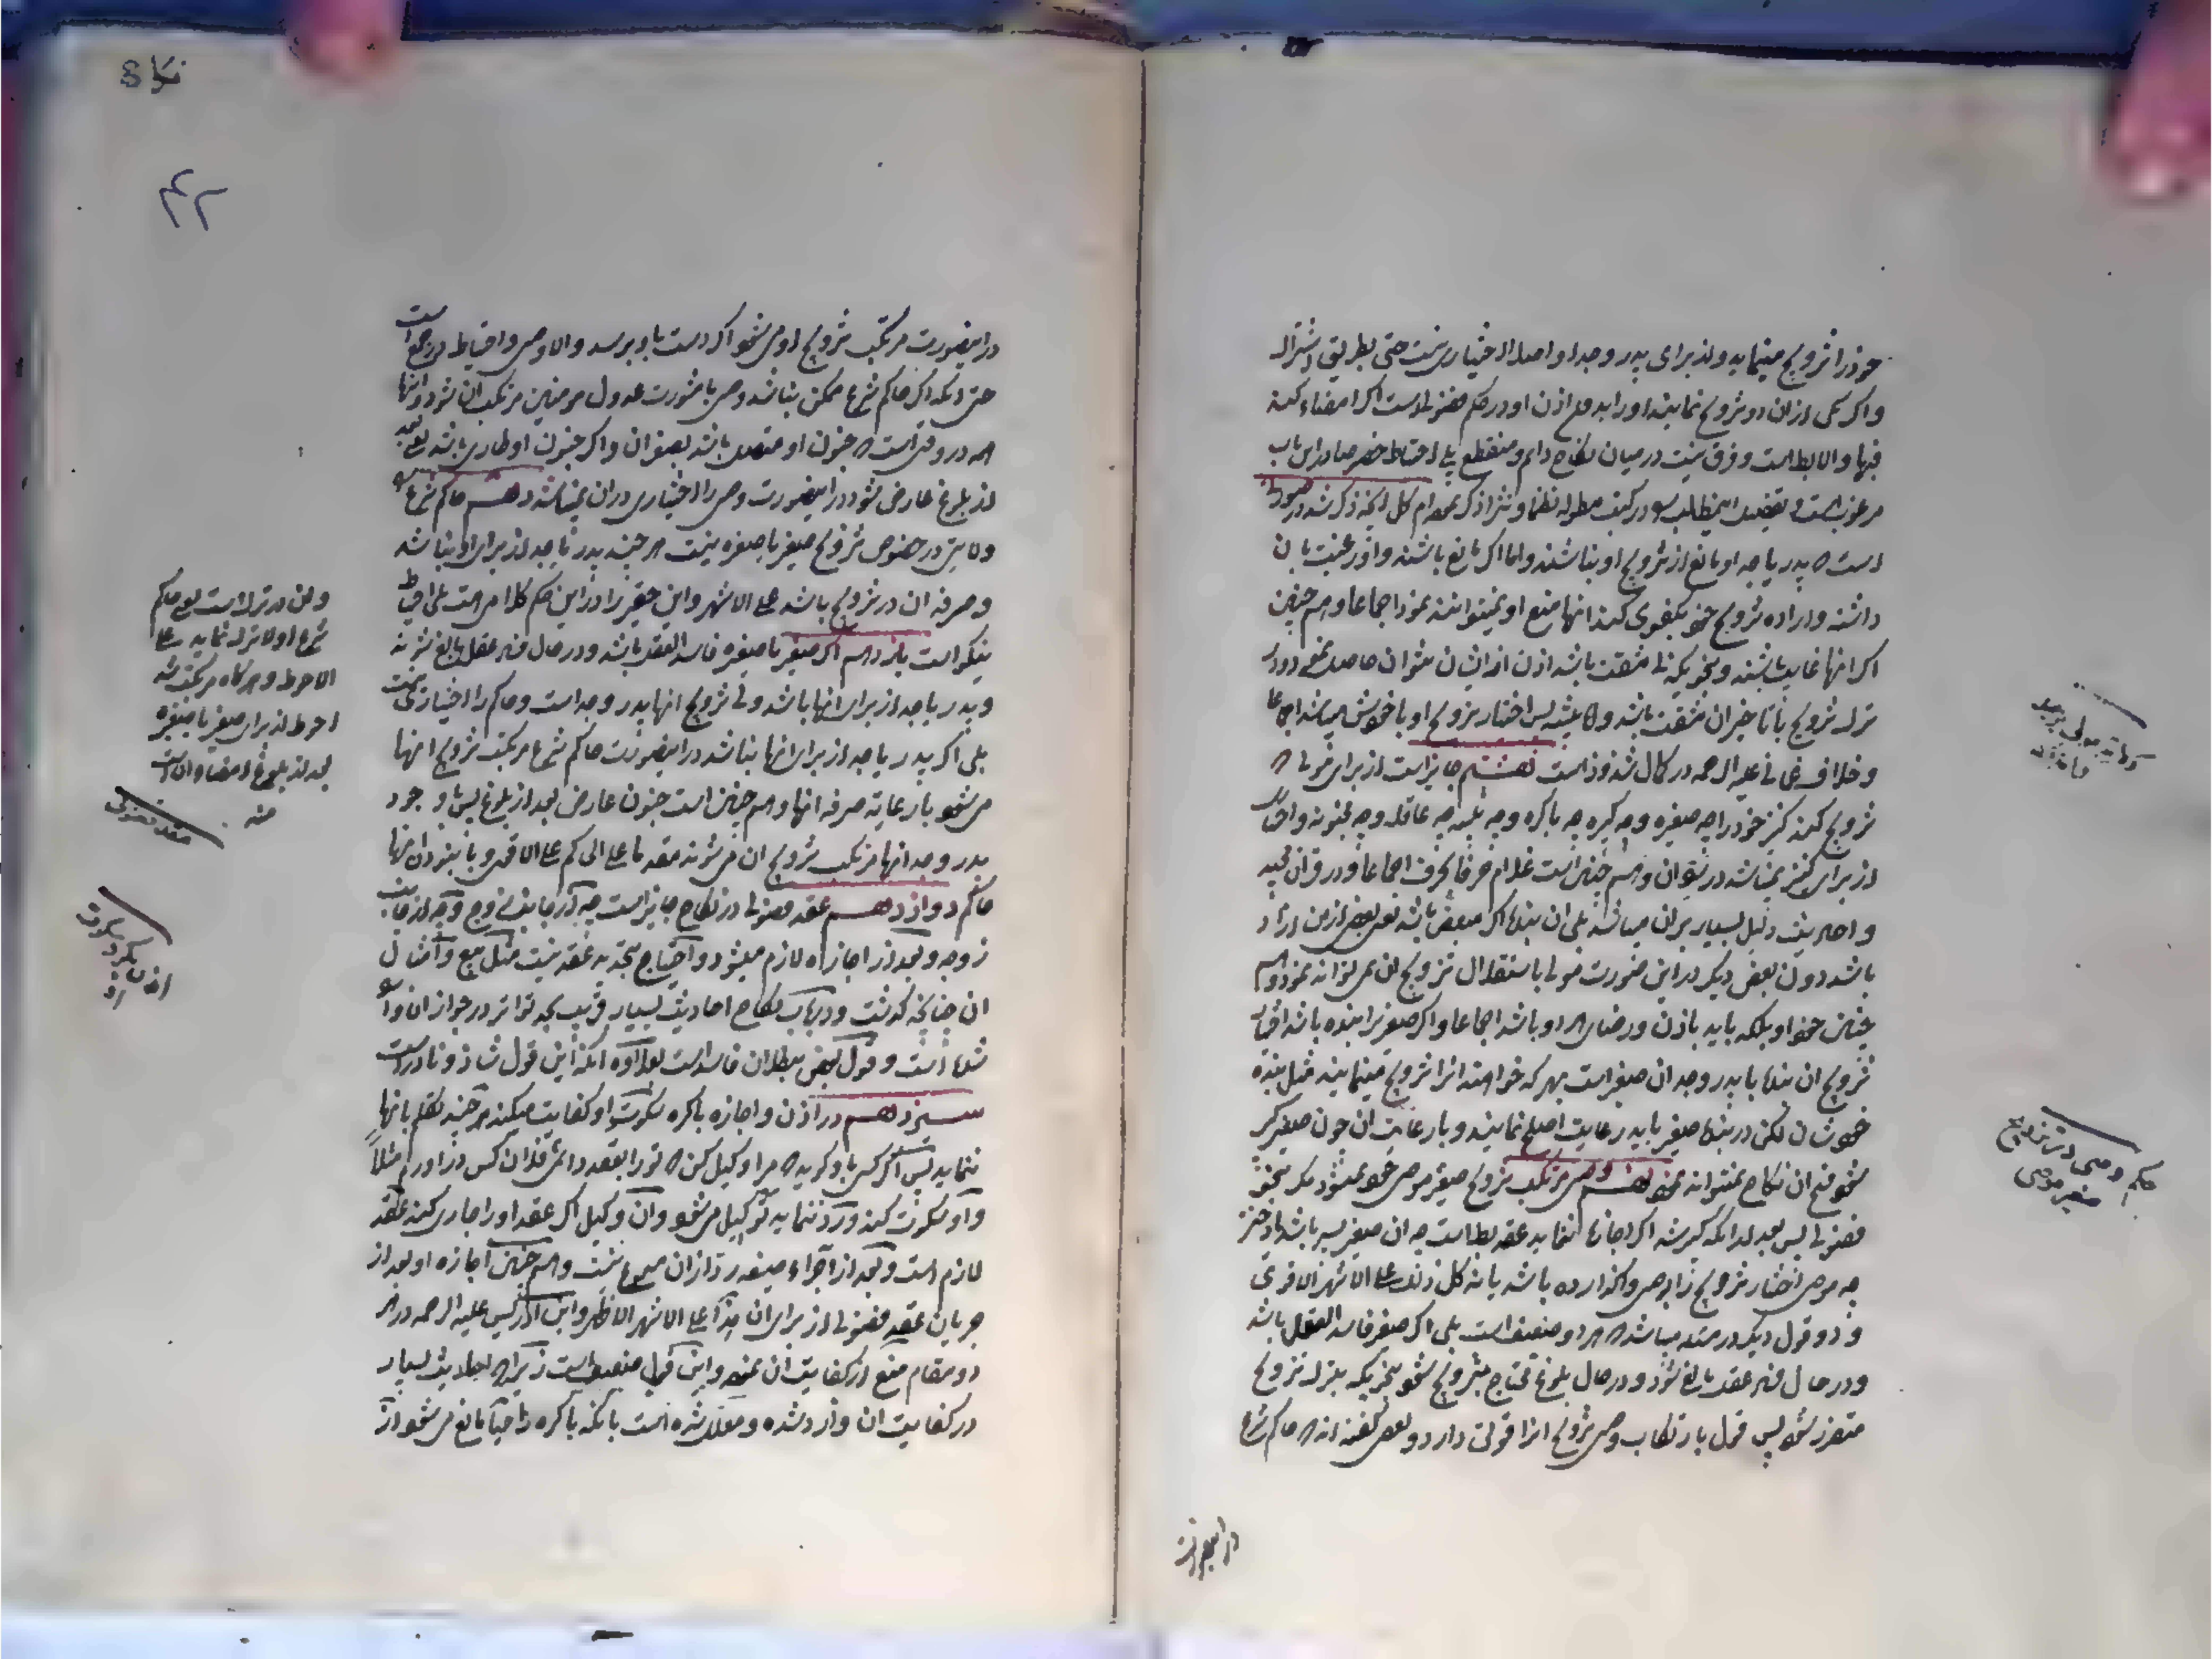 خود را تزویج مینماید و از برای پدر و جد او اصلا اختیاری نیست حتی بطریق اشتراک
و اگر یکی از ان دو تزویج نمایند او را بدون اذن او در حکم فضولی است اگر امضاء کند
فبها و الا باطل است و فرق نیست در میان نکاح دائم و منقطع بلی احتیاط خصوصا در این باب
مرغوب است و تفصیل این مطالب در کتب مطوله نظما و نثرا ذکر نموده‌ام کل انچه ذکر شد در صورتی
است که پدر یا جد او مانع از تزویج او نباشند و اما اگر مانع باشند و او رغبت بان
داشته و اراده تزویج خود بکفوی کند انها منع او نمیتوانند نمود اجماعا و همچنین
اگر انها غایب باشند و بنحویکه با مشقت باشد اذن از ایشان نتوان حاصل نمود و در
ترک تزویج یا تاخیر ان مشقت باشد و اما ثیبه پس اختیار تزویج او با خودش میباشد اجماعا
و خلاف عمانی علیه الرحمه در کمال شذوذ است هشتم جایز است از برای مولی که
تزویج کند کنیز خود را چه صغیره و چه کبیره چه باکره و چه ثیبه چه عاقله و چه مجنونه و اختیار
از برای کنیز نمیباشد در نتوان و همچنین است غلام حرفا بحرف اجماعا و در قران مجید
و احادیث دلیل بسیار بران میباشد بلی ان بنده اگر مبعض باشد یعنی بعض از من ازاد
باشد دون بعض دیگر در این صورت مولی باستقلال تزویج ان نمیتواند نمود و هم
چنین خود او بلکه باید باذن و رضای هر دو باشد اجماعا و اگر صغیر را بنده باشد اختیار
تزویج ان بنده با پدر و جد ان صغیر است بهر که خواهند انرا تزویج مینمایند مثل بنده
خودشان لکن در بنده صغیر باید رعایت اصلح نمایند و با رعایت ان چون صغیر کبیر
شود فسخ ان نکاح نمیتواند نمود نهم وصی مرتکب تزویج صغیر موصی خود نمیشود مگر بنحو
فضولی پس بعد از انکه کبیر شد اگر اجازه ننماید عقد باطل است چه ان صغیر پسر باشد یا دختر
چه موصی اختیار تزویج را بوصی واگذارده باشد یا نه کل ذلک علی الاشهر الاقوی
و دو قول دیگر در مسئله میباشد که هر دو ضعیف است بلی اگر صغیر فاسد العقل باشد
و در حال فساد عقل بالغ شود و در حال بلوغ محتاج بتزویج شود بنحویکه بترک تزویج
متضرر شود پس قول بارتکاب وصی تزویج انرا قوتی دارد و بعضی گفته‌اند که حاکم شرع
در اینصورت
ولایة مولی بر عبد
حکم وصی در تزویج
صغیر موصی
۴۲
در اینصورت مرتکب تزویج او می‌شود اگر دست باو برسد و الا وصی و احتیاط در جمع است
حتی انکه اگر حاکم شرع ممکن نباشد وصی با مشورت عدول مومنین مرتکب ان شود و اینها
همه در وقتی است که جنون او متصل باشد بصغر ان و اگر جنون او طاری باشد یعنی بعد
از بلوغ عارض شود در اینصورت وصی را اختیاری در ان نمیباشد دهم حاکم شرع را
ولایتی در خصوص تزویج صغیر یا صغیره نیست هر چند پدر یا جد از برای او نباشد
و صرفه ان در تزویج باشد علی الاشهر و این حقیر را در این حکم کلام است بلی احتیاط
نیکو است یازدهم اگر صغیر یا صغیره فاسد العقل باشد و در حال فساد عقل بالغ شوند
و پدر یا جد از برای انها باشد ولی تزویج انها پدر و جد است و حاکم را اختیاری نیست
بلی اگر پدر یا جد از برای انها نباشد در اینصورت حاکم شرع مرتکب تزویج انها
می‌شود با رعایة صرفه انها و همچنین است جنون عارض بعد از بلوغ پس با وجود
پدر و جد انها مرتکب تزویج ان می‌شوند مقدما علی الحاکم علی الاقوی و با نبودن انها
حاکم دوازدهم عقد فضولی در نکاح جایز است چه از جانب زوج و چه از جانب
زوجه و بعد از اجازه لازم میشود و احتیاج بتجدید عقد نیست مثل بیع و امثال
ان چنانچه گذشت و در باب نکاح احادیث بسیار قریب بحد تواتر در جواز ان وارد
شده است و قول بعض ببطلان فاسد است بعلاوه انکه این قول شاذ و نادر است
سیزدهم در اذن و اجازه باکره سکوت او کفایت میکند هر چند تکلم بانها
ننماید پس اگر کسی باو گوید که مرا وکیل کن که تو را بعقد دائمی فلان کس در اورم مثلا
و او سکوت کند و رد ننماید توکیل می‌شود و ان وکیل اگر عقد او را جاری کند عقد
لازم است و بعد از اجراء صیغه رد از ان مسموع نیست و همچنین اجازه او بعد از
جریان عقد فضولی از برای ان هذا علی الاشهر الاظهر و ابن ادریس علیه الرحمه در هر
دو مقام منع از کفایت ان نموده و این قول ضعیف است زیرا که احادیث بسیار
در کفایت ان وارد شده و معلل شده است بانکه باکره را حیا مانع می‌شود از
ولی در ترک است یعنی حاکم
شرع اولا ترک نماید علی
الاحوط و هرگاه مرتکب شد
احوط از برای صغیر یا صغیره
بعد از بلوغ امضاء ان است
منه
عقد فضولی
اذن بکر سکوت
او